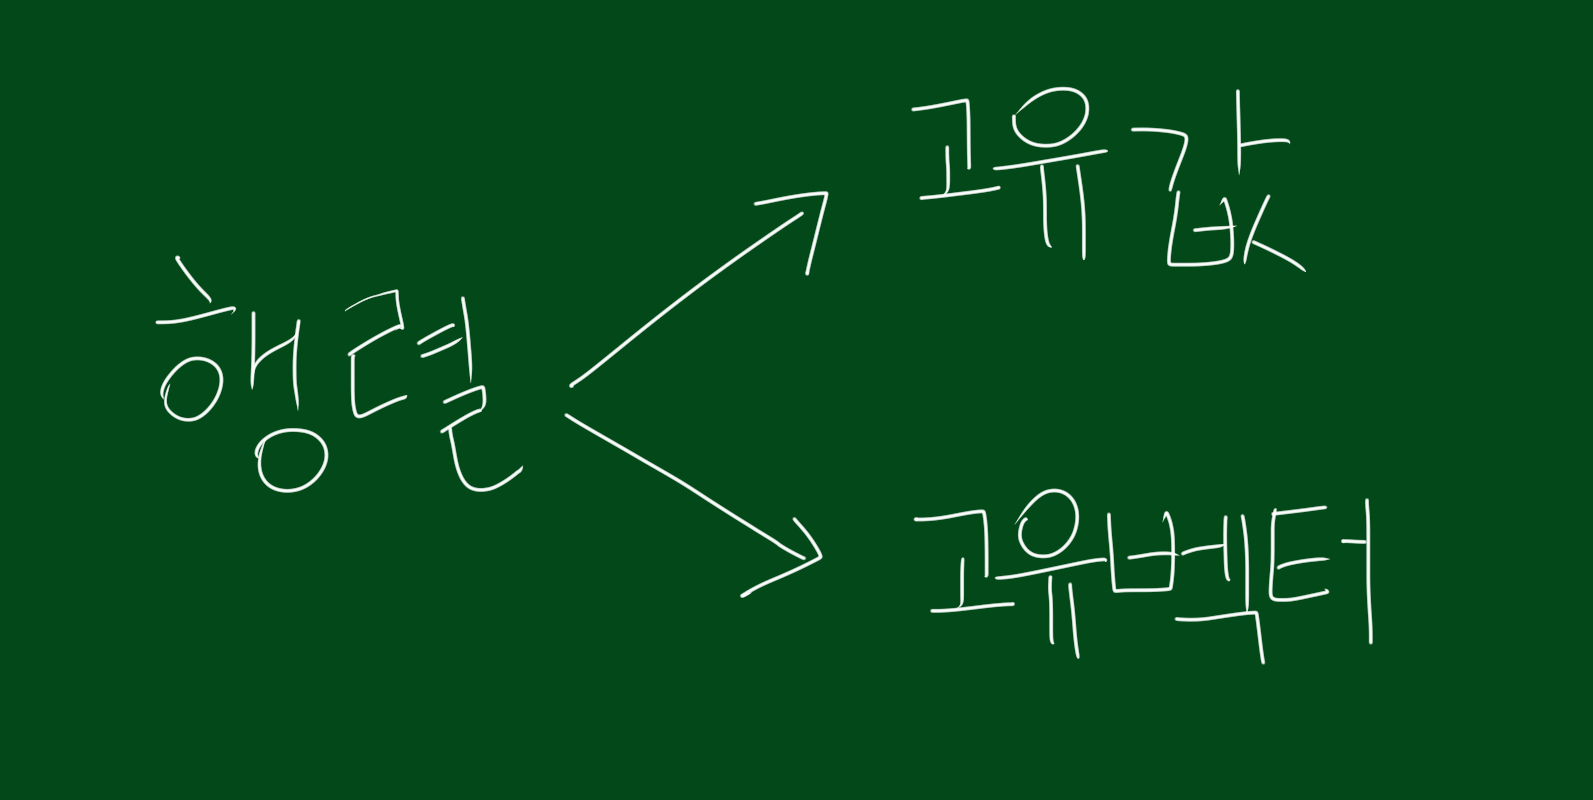 행렬
고유값
고유벡터